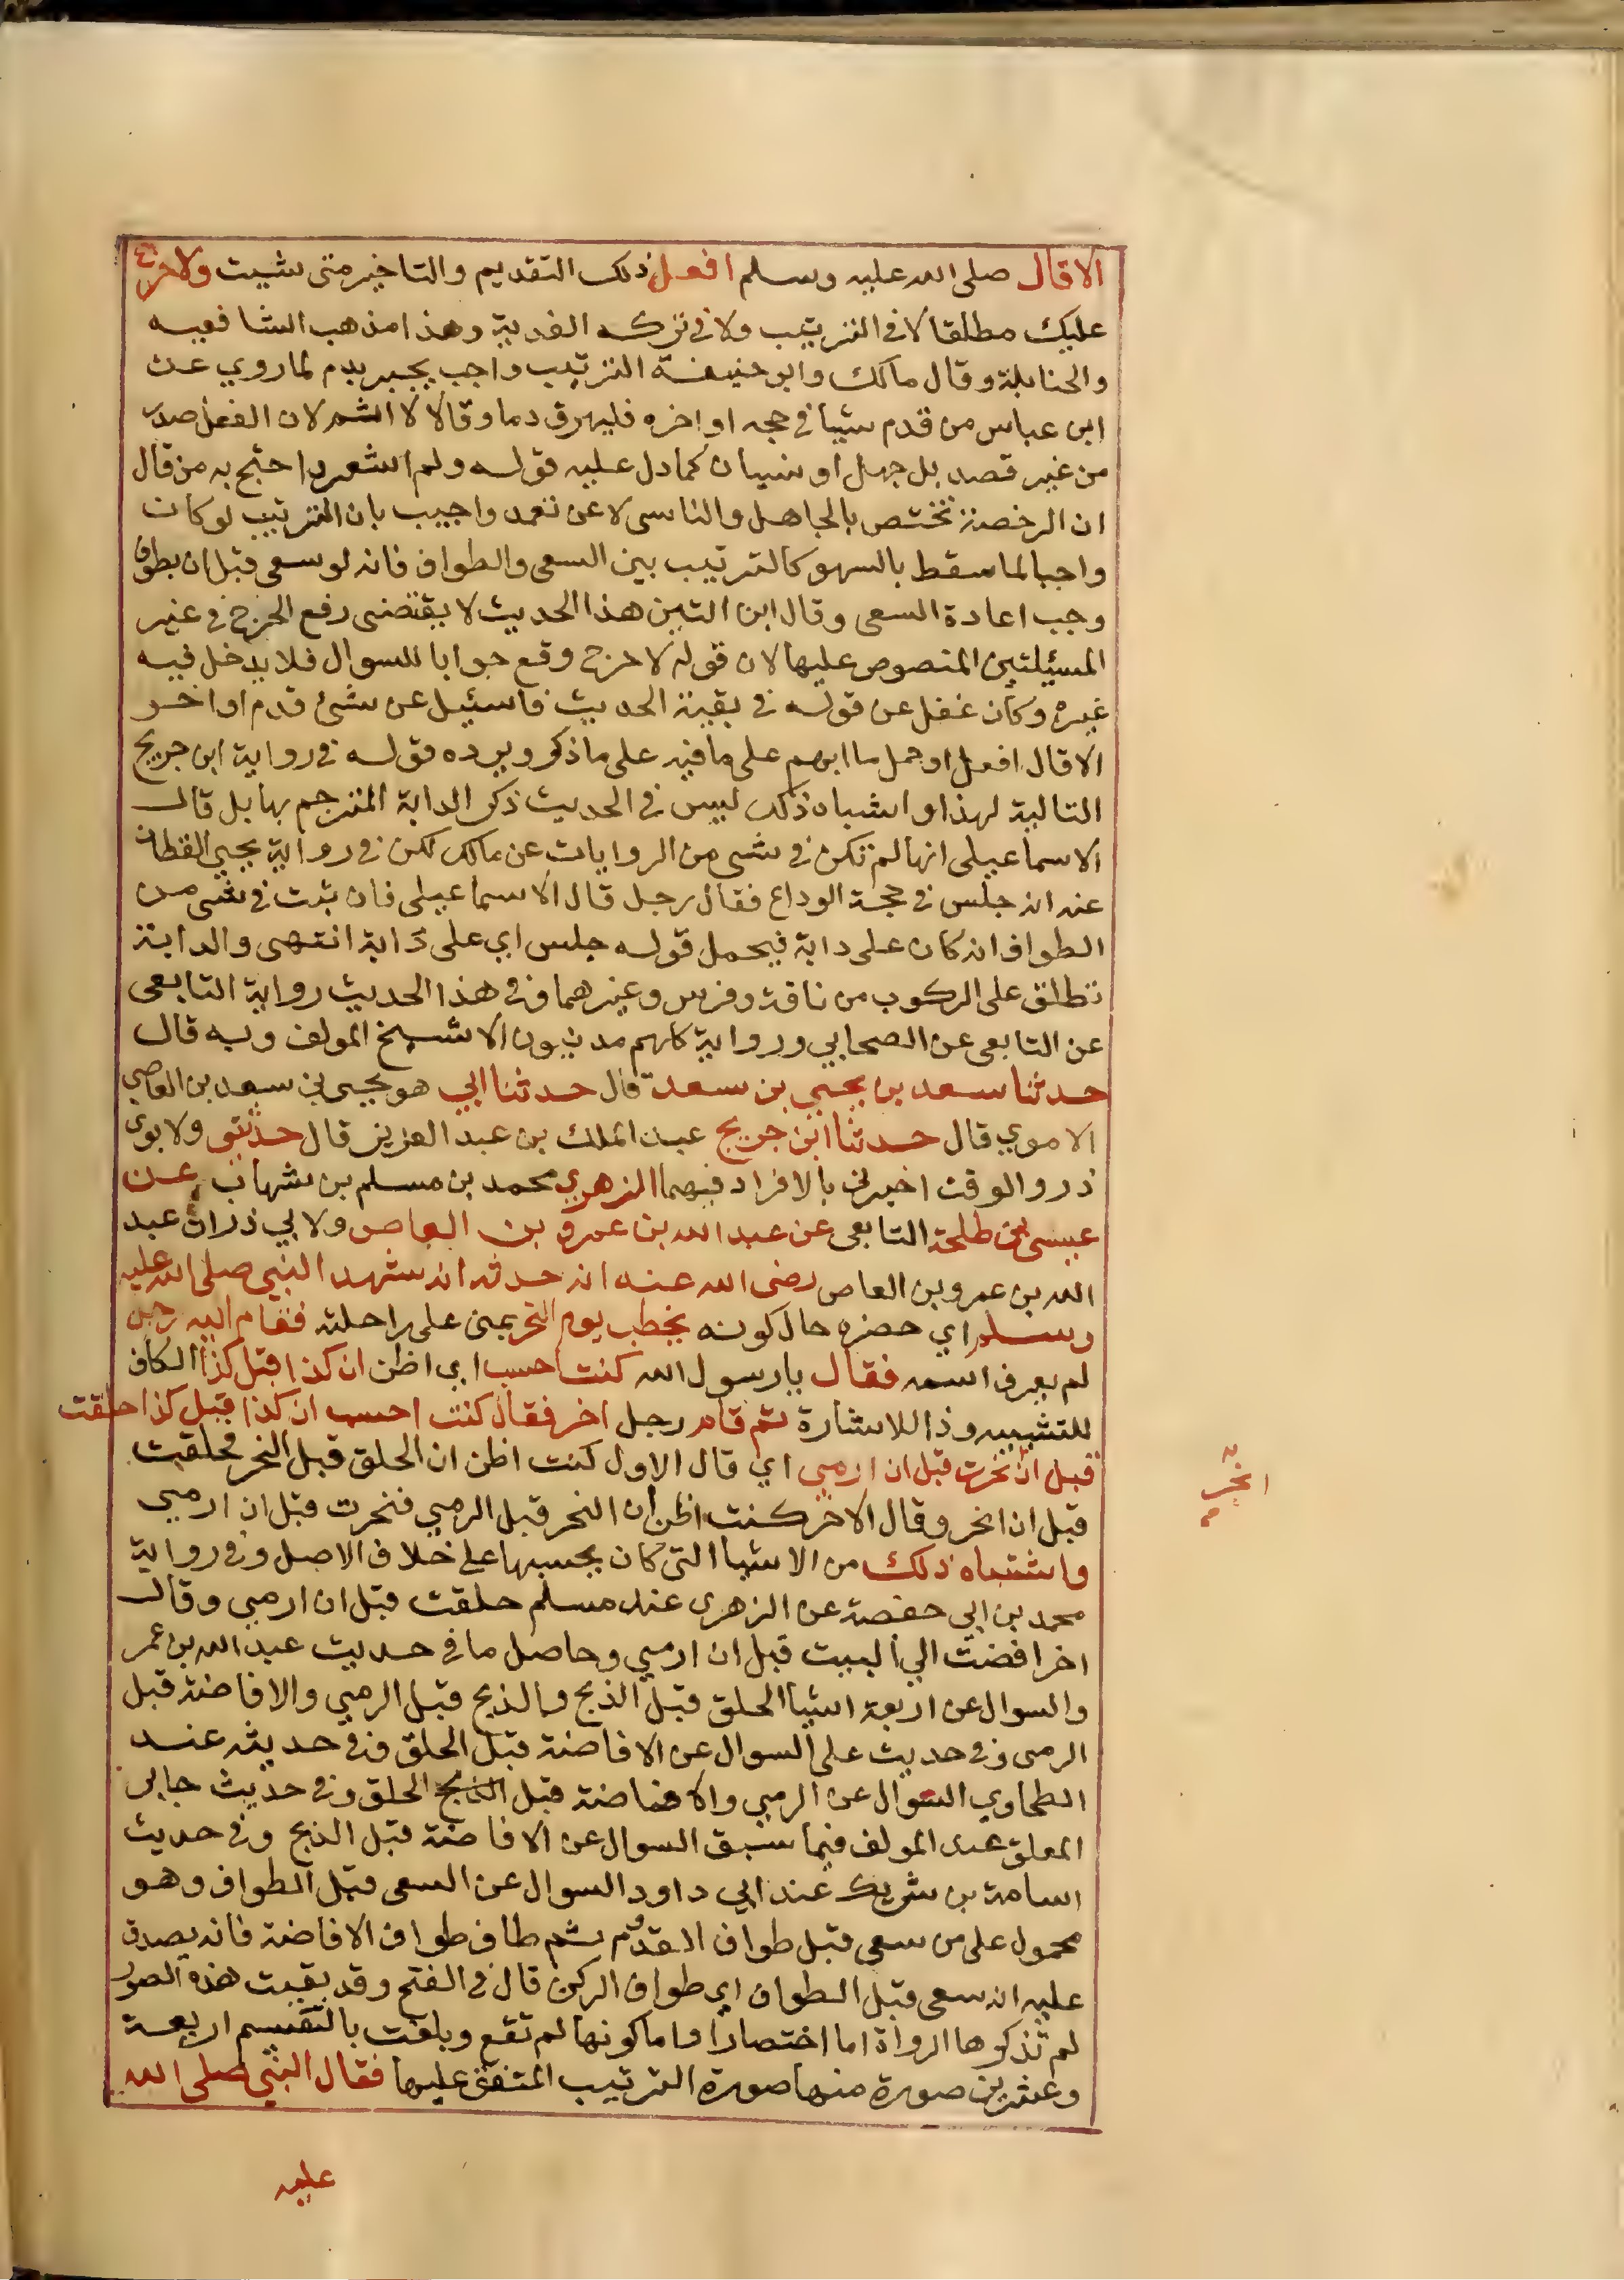 الا قال صلى الله عليه وسلم افعل ذلك التقديم والتاخير متى شيت ولا حرج
عليك مطلقا لا في الترتيب ولا في تركه الفدية وهذا مذهب الشافعيه
والحنابلة وقال مالك وابو حنيفة الترتيب واجب يجبر بدم لما روي عن
ابن عباس من قدم شيا في حجه او اخره فليهرق دما وقالا لا اثم لان الفعل صدر
من غير قصد بل جهل او نسيان كما دل عليه قوله ولم اشعر واحتج به من قال
ان الرخصة تختص بالجاهل والناسي لا عن تعمد واجيب بان الترتيب لو كان
واجبا لما سقط بالسهو كالترتيب بين السعي والطواف فانه لو سعى قبل ان يطوف
وجب اعادة السعي وقال ابن التين هذا الحديث لا يقتضى رفع الحرج في غير
المسيلتين المنصوص عليها لان قوله لا حرج وقع جوابا للسوال فلا يدخل فيه
غيره وكان غفل عن قوله في بقية الحديث فما سئيل عن شئ قدم او اخر
الا قال افعل او حمل ما ابهم على ما فيه على ما ذكر ويرده قوله في رواية ابن جريج
التالية لهذا واشباه ذلك ليس في الحديث ذكر الدابة المترجم بها بل قال
الاسماعيلى انها لم تكن في شي من الروايات عن مالك لكن في رواية يحيى القطان
عنه انه جلس في حجة الوداع فقال رجل قال الاسماعيلى فان ثبت في شي من
الطواف انه كان على دابة فيحمل قوله جلس اي على دابة انتهى والدابة
تطلق على الركوب من ناقة وفرس وغيرهما وفي هذا الحديث رواية التابعى
عن التابعى عن الصحابي ورواية كلهم مدنيون الا شيخ المولف وبه قال
حدثنا سعد بن يحيى بن سعد قال حدثنا ابي هو يحيى بن سعد بن العاصي
الاموي قال حدثنا ابن جريج عبد الملك بن عبد العزيز قال حدثني ولابوى
ذر والوقت اخبرني بالافراد فيهما الزهري محمد بن مسلم بن شهاب عن
عيسى بن طلحة التابعى عن عبد الله بن عمرو بن العاص ولابي ذر ان عبد
الله بن عمرو بن العاص رضى الله عنه انه حدثه انه شهد النبي صلى الله عليه
وسلم اي حضره حال كونه يخطب يوم النحر بمنى على راحلته فقام اليه رجل
لم يعرف اسمه فقال يا رسول الله كنت احسب اي اظن ان كذا قبل كذا الكاف
للتشبيه وذا للاشارة ثم قام رجل اخر فقال كنت احسب ان كذا قبل كذا حلقت
قبل ان نحرت قبل ان ارمي اي قال الاول كنت اظن ان الحلق قبل النحر فحلقت
انحر
قبل ان انحر وقال الاخر كنت اظن ان النحر قبل الرمي فنحرت قبل ان ارمي
واشتباه ذلك من الاشيا التى كان يحسبها على خلاف الاصل وفي رواية
محمد بن ابي حفصة عن الزهرى عند مسلم حلقت قبل ان ارمي وقال
اخر افضت الي البيت قبل ان ارمي وحاصل ما في حديث عبد الله بن عمر
والسوال عن اربعة اشيا الحلق قبل الذبح والذبح قبل الرمي والافاضة قبل
الرمى وفي حديث على السوال عن الافاضة قبل الحلق وفي حديثه عند
الطحاوي السوال عن الرمي والافاضة قبل الذبح الحلق وفي حديث جابر
المعلق عند المولف فيما سبق السوال عن الافاضة قبل الذبح وفي حديث
اسامة بن شريك عند ابي داود السوال عن السعى قبل الطواف وهو
محمول على من سعى قبل طواف القدوم ثم طاف طواف الافاضة فانه يصدق
عليه انه سعى قبل الطواف اي طواف الركن قال في الفتح وقد بقيت هذه الصور
لم تذكرها الرواة اما اختصارا واما كونها لم تقع وبلغت بالتقسيم اربعة
وعشرين صورة منها صورة الترتيب المتفق عليها فقال النبي صلى الله
عليه